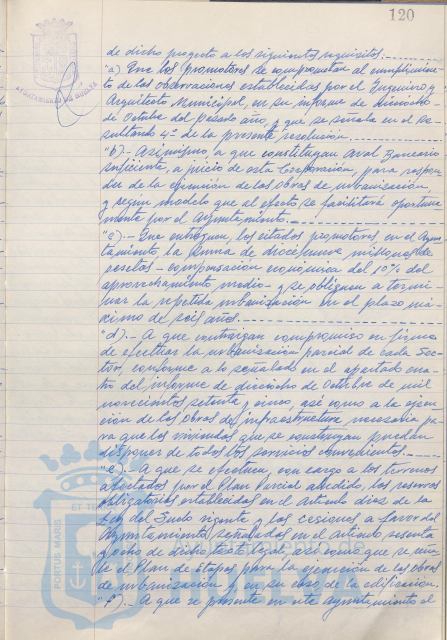 120
AYUNTAMIENTO DE HUELVA
de dicho proyecto a los siguientes requisitos.
"a) Que los promotores se comprometan al cumplimien-
to de las observaciones establecidas por el Ingeniero y
Arquitecto Municipal, en su informe de dieciocho
de Octubre del pasado año, y que se señala en el Re-
sultando 4º de la presente resolución.
"b).- Asimismo, a que constituyan Aval Bancario
suficiente, a juicio de esta Corporación, para respon-
der de la ejecución de las obras de urbanización,
y según modelo que al efecto se facilitará oportuna-
mente por el Ayuntamiento.
"c).- Que entreguen, los citados promotores en el Ayun-
tamiento, la suma de diecinueve millones de
pesetas - compensación económica del 10% del
aprovechamiento medio - y se obliguen a termi-
nar la repetida urbanización en el plazo má-
ximo de seis años.
"d).- A que contraigan compromiso en firme
de efectuar la urbanización parcial de cada Sec-
tor, conforme a lo señalado en el apartado cua-
tro del informe de dieciocho de Octubre de mil
novecientos setenta y cinco, así como a la ejecu-
ción de las obras de infraestructura necesaria pa-
ra que las viviendas que se construyan puedan
disponer de todos los servicios convenientes.
"e).- A que se efectúen, con cargo a los terrenos
afectados por el Plan Parcial aludido, las reservas
obligatorias establecidas en el Artículo diez de la
Ley del Suelo vigente y las cesiones a favor del
Ayuntamiento señaladas en el Artículo sesenta
y ocho de dicho texto legal, así como que se
el Plan de Etapas para la ejecución de las obras
de urbanización y en su caso de la edificación.
"f).- A que se presente en este Ayuntamiento el
PORTUS MARIS
ET TER
HUELVA